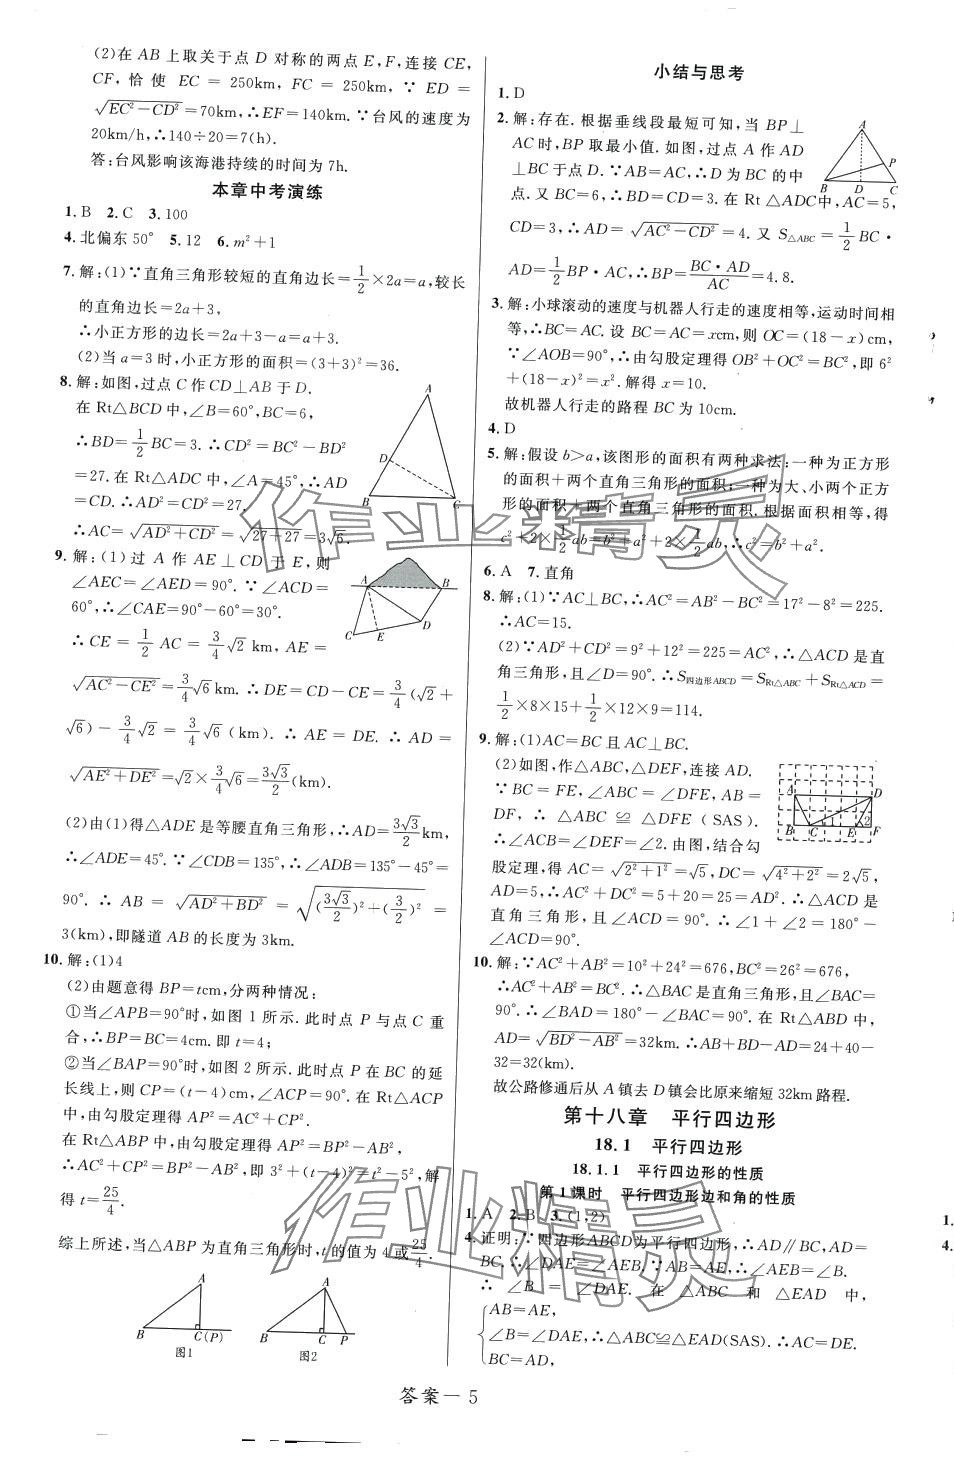 (2)在 AB 上取关于点 D 对称的两点 E,F,连接 CE,
CF,恰使 EC = 250km, FC = 250km, ∵ ED =
√(EC²-CD²)=70km,∴EF=140km.∵台风的速度为
20km/h,∴140÷20=7(h).
答:台风影响该海港持续的时间为 7h.
本章中考演练
1. B 2. C 3. 100
4. 北偏东 50° 5. 12 6. m²+1
7. 解:(1)∵直角三角形较短的直角边长=1/2×2a=a,较长
的直角边长=2a+3,
∴小正方形的边长=2a+3-a=a+3.
(2)当 a=3 时,小正方形的面积=(3+3)²=36.
8. 解:如图,过点 C 作 CD⊥AB 于 D.
在 Rt△BCD 中,∠B=60°,BC=6,
∴BD=1/2BC=3.∴CD²=BC²-BD²
=27.在 Rt△ADC 中,∠A=45°,∴AD
=CD.∴AD²=CD²=27.
∴AC=√(AD²+CD²)=√(27+27)=3√6.
A
D
B
C
9. 解:(1)过 A 作 AE⊥CD 于 E,则
∠AEC=∠AED=90°.∵∠ACD=
60°,∴∠CAE=90°-60°=30°.
∴CE=1/2 AC=3/4√2 km,AE=
√(AC²-CE²)=3/4√6 km.∴DE=CD-CE=3/4(√2+
√6)-3/4√2=3/4√6(km).∴AE=DE.∴AD=
√(AE²+DE²)=√2×3/4√6=3√3/2(km).
A
B
C
E
D
(2)由(1)得△ADE 是等腰直角三角形,∴AD=3√3/2km,
∴∠ADE=45°.∵∠CDB=135°,∴∠ADB=135°-45°=
90°.∴AB=√(AD²+BD²)=√((3√3/2)²+(3/2)²)=
3(km),即隧道 AB 的长度为 3km.
10. 解:(1)4
(2)由题意得 BP=tcm,分两种情况:
①当∠APB=90°时,如图 1 所示.此时点 P 与点 C 重
合,∴BP=BC=4cm.即 t=4;
②当∠BAP=90°时,如图 2 所示.此时点 P 在 BC 的延
长线上,则 CP=(t-4)cm,∠ACP=90°.在 Rt△ACP
中,由勾股定理得 AP²=AC²+CP².
在 Rt△ABP 中,由勾股定理得 AP²=BP²-AB²,
∴AC²+CP²=BP²-AB²,即 3²+(t-4)²=t²-5²,解
得 t=25/4.
综上所述,当△ABP 为直角三角形时,t 的值为 4 或25/4.
A
B
C(P)
图1
A
B
C
P
图2
小结与思考
1. D
2. 解:存在.根据垂线段最短可知,当 BP⊥
AC时,BP 取最小值.如图,过点 A 作 AD
⊥BC于点 D.∵AB=AC,∴D 为 BC 的中
点.又 BC=6,∴BD=CD=3.在 Rt△ADC中,AC=5,
CD=3,∴AD=√(AC²-CD²)=4.又 S△ABC=1/2BC·
AD=1/2BP·AC,∴BP=BC·AD/AC=4.8.
A
P
B
D
C
3. 解:小球滚动的速度与机器人行走的速度相等,运动时间相
等,∴BC=AC.设 BC=AC=xcm,则 OC=(18-x)cm,
∵∠AOB=90°,∴由勾股定理得 OB²+OC²=BC²,即 6²
+(18-x)²=x².解得 x=10.
故机器人行走的路程 BC 为 10cm.
4. D
5. 解:假设 b>a,该图形的面积有两种求法:一种为正方形
的面积+两个直角三角形的面积;一种为大、小两个正方
形的面积+两个直角三角形的面积.根据面积相等,得
c²+2×1/2ab=b²+a²+2×1/2ab,∴c²=b²+a².
6. A 7. 直角
8. 解:(1)∵AC⊥BC,∴AC²=AB²-BC²=17²-8²=225.
∴AC=15.
(2)∵AD²+CD²=9²+12²=225=AC²,∴△ACD 是直
角三角形,且∠D=90°.∴S四边形ABCD=SRt△ABC+SRt△ACD=
1/2×8×15+1/2×12×9=114.
9. 解:(1)AC=BC且 AC⊥BC.
(2)如图,作△ABC,△DEF,连接 AD.
∵BC=FE,∠ABC=∠DFE,AB=
DF,∴△ABC≌△DFE(SAS).
∴∠ACB=∠DEF=∠2.由图,结合勾
股定理,得 AC=√(2²+1²)=√5,DC=√(4²+2²)=2√5,
AD=5,∴AC²+DC²=5+20=25=AD².∴△ACD 是
直角三角形,且∠ACD=90°.∴∠1+∠2=180°-
∠ACD=90°.
A
D
B
C
1
E
2
F
10. 解:∵AC²+AB²=10²+24²=676,BC²=26²=676,
∴AC²+AB²=BC².∴△BAC 是直角三角形,且∠BAC=
90°.∴∠BAD=180°-∠BAC=90°.在 Rt△ABD 中,
AD=√(BD²-AB²)=32km.∴AB+BD-AD=24+40-
32=32(km).
故公路修通后从 A 镇去 D 镇会比原来缩短 32km 路程.
第十八章 平行四边形
18.1 平行四边形
18.1.1 平行四边形的性质
第1课时 平行四边形边和角的性质
1. A 2. B 3. (1,2)
4. 证明:∵四边形ABCD为平行四边形,∴AD∥BC,AD=
BC.∴∠DAE=∠AEB.∵AB=AE,∴∠AEB=∠B.
∴∠B=∠DAE.在△ABC 和△EAD 中,
AB=AE,
∠B=∠DAE,∴△ABC≌△EAD(SAS).∴AC=DE.
BC=AD,
1.
4.
答案－5
作业精灵
作业精灵